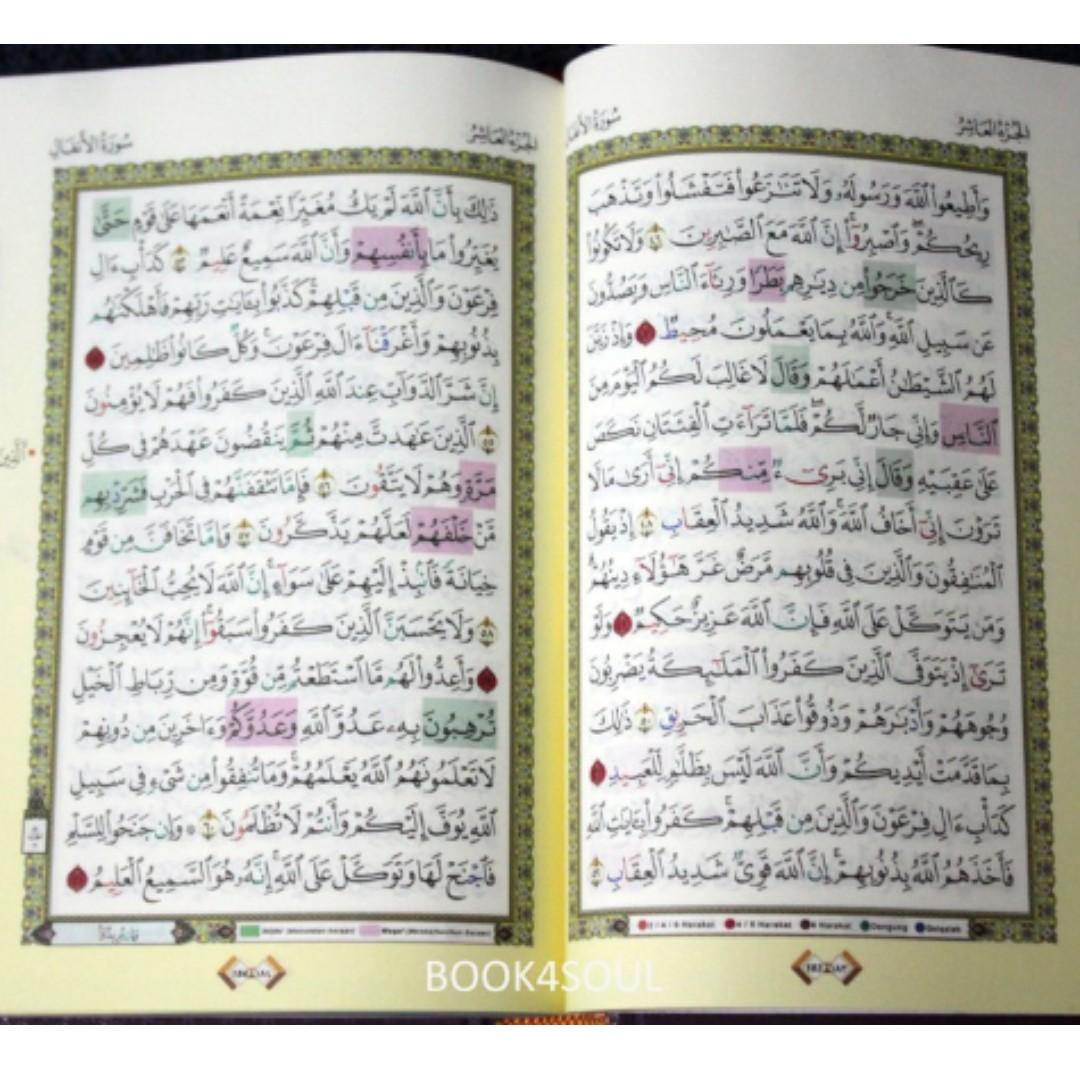 الجزء العاشر
سورة الأنفال
وَأَطِيعُوا۟ ٱللَّهَ وَرَسُولَهُۥ وَلَا تَنَـٰزَعُوا۟ فَتَفْشَلُوا۟ وَتَذْهَبَ
رِيحُكُمْ ۖ وَٱصْبِرُوٓا۟ ۚ إِنَّ ٱللَّهَ مَعَ ٱلصَّـٰبِرِينَ ٤٦ وَلَا تَكُونُوا۟
كَٱلَّذِينَ خَرَجُوا۟ مِن دِيَـٰرِهِم بَطَرًا وَرِئَآءَ ٱلنَّاسِ وَيَصُدُّونَ
عَن سَبِيلِ ٱللَّهِ ۚ وَٱللَّهُ بِمَا يَعْمَلُونَ مُحِيطٌ ٤٧ وَإِذْ زَيَّنَ
لَهُمُ ٱلشَّيْطَـٰنُ أَعْمَـٰلَهُمْ وَقَالَ لَا غَالِبَ لَكُمُ ٱلْيَوْمَ مِنَ
ٱلنَّاسِ وَإِنِّى جَارٌ لَّكُمْ ۖ فَلَمَّا تَرَآءَتِ ٱلْفِئَتَانِ نَكَصَ
عَلَىٰ عَقِبَيْهِ وَقَالَ إِنِّى بَرِىٓءٌ مِّنكُمْ إِنِّىٓ أَرَىٰ مَا لَا
تَرَوْنَ إِنِّىٓ أَخَافُ ٱللَّهَ ۚ وَٱللَّهُ شَدِيدُ ٱلْعِقَابِ ٤٨ إِذْ يَقُولُ
ٱلْمُنَـٰفِقُونَ وَٱلَّذِينَ فِى قُلُوبِهِم مَّرَضٌ غَرَّ هَـٰٓؤُلَآءِ دِينُهُمْ ۗ
وَمَن يَتَوَكَّلْ عَلَى ٱللَّهِ فَإِنَّ ٱللَّهَ عَزِيزٌ حَكِيمٌ ٤٩ وَلَوْ
تَرَىٰٓ إِذْ يَتَوَفَّى ٱلَّذِينَ كَفَرُوا۟ ۙ ٱلْمَلَـٰٓئِكَةُ يَضْرِبُونَ
وُجُوهَهُمْ وَأَدْبَـٰرَهُمْ وَذُوقُوا۟ عَذَابَ ٱلْحَرِيقِ ٥٠ ذَٰلِكَ
بِمَا قَدَّمَتْ أَيْدِيكُمْ وَأَنَّ ٱللَّهَ لَيْسَ بِظَلَّـٰمٍ لِّلْعَبِيدِ ٥١
كَدَأْبِ ءَالِ فِرْعَوْنَ ۙ وَٱلَّذِينَ مِن قَبْلِهِمْ ۚ كَفَرُوا۟ بِـَٔايَـٰتِ ٱللَّهِ
فَأَخَذَهُمُ ٱللَّهُ بِذُنُوبِهِمْ ۗ إِنَّ ٱللَّهَ قَوِىٌّ شَدِيدُ ٱلْعِقَابِ ٥٢
الجزء العاشر
سورة الأنفال
ذَٰلِكَ بِأَنَّ ٱللَّهَ لَمْ يَكُ مُغَيِّرًا نِّعْمَةً أَنْعَمَهَا عَلَىٰ قَوْمٍ حَتَّىٰ
يُغَيِّرُوا۟ مَا بِأَنفُسِهِمْ ۙ وَأَنَّ ٱللَّهَ سَمِيعٌ عَلِيمٌ ٥٣ كَدَأْبِ ءَالِ
فِرْعَوْنَ ۙ وَٱلَّذِينَ مِن قَبْلِهِمْ ۚ كَذَّبُوا۟ بِـَٔايَـٰتِ رَبِّهِمْ فَأَهْلَكْنَـٰهُم
بِذُنُوبِهِمْ وَأَغْرَقْنَآ ءَالَ فِرْعَوْنَ ۚ وَكُلٌّ كَانُوا۟ ظَـٰلِمِينَ ٥٤
إِنَّ شَرَّ ٱلدَّوَآبِّ عِندَ ٱللَّهِ ٱلَّذِينَ كَفَرُوا۟ فَهُمْ لَا يُؤْمِنُونَ
٥٥ ٱلَّذِينَ عَـٰهَدتَّ مِنْهُمْ ثُمَّ يَنقُضُونَ عَهْدَهُمْ فِى كُلِّ
مَرَّةٍ وَهُمْ لَا يَتَّقُونَ ٥٦ فَإِمَّا تَثْقَفَنَّهُمْ فِى ٱلْحَرْبِ فَشَرِّدْ بِهِم
مَّنْ خَلْفَهُمْ لَعَلَّهُمْ يَذَّكَّرُونَ ٥٧ وَإِمَّا تَخَافَنَّ مِن قَوْمٍ
خِيَانَةً فَٱنۢبِذْ إِلَيْهِمْ عَلَىٰ سَوَآءٍ ۚ إِنَّ ٱللَّهَ لَا يُحِبُّ ٱلْخَآئِنِينَ
٥٨ وَلَا يَحْسَبَنَّ ٱلَّذِينَ كَفَرُوا۟ سَبَقُوٓا۟ ۚ إِنَّهُمْ لَا يُعْجِزُونَ
٥٩ وَأَعِدُّوا۟ لَهُم مَّا ٱسْتَطَعْتُم مِّن قُوَّةٍ وَمِن رِّبَاطِ ٱلْخَيْلِ
تُرْهِبُونَ بِهِۦ عَدُوَّ ٱللَّهِ وَعَدُوَّكُمْ وَءَاخَرِينَ مِن دُونِهِمْ
لَا تَعْلَمُونَهُمُ ٱللَّهُ يَعْلَمُهُمْ ۚ وَمَا تُنفِقُوا۟ مِن شَىْءٍ فِى سَبِيلِ
ٱللَّهِ يُوَفَّ إِلَيْكُمْ وَأَنتُمْ لَا تُظْلَمُونَ ٦٠ ۞ وَإِن جَنَحُوا۟ لِلسَّلْمِ
فَٱجْنَحْ لَهَا وَتَوَكَّلْ عَلَى ٱللَّهِ ۚ إِنَّهُۥ هُوَ ٱلسَّمِيعُ ٱلْعَلِيمُ ٦١
BOOK4SOUL